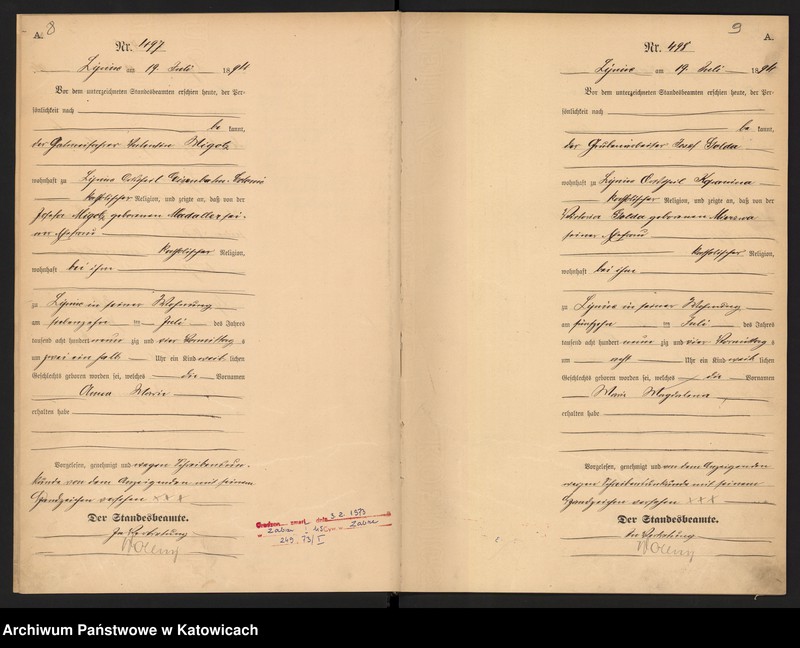 A. 8
Nr. 497
am 19 Juli 1894
Vor dem unterzeichneten Standesbeamten erschien heute, der Per-
sönlichkeit nach
be kannt,
der Valentin Migots
wohnhaft zu
katholischer Religion, und zeigte an, daß von der
Josefa Migots geborenen sei-
ner Ehefrau
katholischer Religion,
wohnhaft bei ihm
zu in seiner Wohnung
am ten Juli des Jahres
tausend acht hundert neun zig und vier Vormittags
um zwei ein halb Uhr ein Kind weib lichen
Geschlechts geboren worden sei, welches die Vornamen
Anna Marie
erhalten habe
Vorgelesen, genehmigt und wegen Schreibensun-
kunde von dem Anzeigenden mit seinem
Handzeichen versehen XXX
Der Standesbeamte.
In Vertretung
Wollny
zmarł dnia 3.2.1973
Zabrze
249/73/I
9 A.
Nr. 498
am 19 Juli 1894
Vor dem unterzeichneten Standesbeamten erschien heute, der Per-
sönlichkeit nach
be kannt,
der Grubenarbeiter Josef Golda
wohnhaft zu
katholischer Religion, und zeigte an, daß von der
Golda geborenen
seiner Ehefrau
katholischer Religion,
wohnhaft bei ihm
zu in seiner Wohnung
am fünfzehn ten Juli des Jahres
tausend acht hundert neun zig und vier Vormittag s
um acht Uhr ein Kind weib lichen
Geschlechts geboren worden sei, welches die Vornamen
Marie Magdalena
erhalten habe
Vorgelesen, genehmigt und von dem Anzeigenden
wegen Schreibensunkunde mit seinem
Handzeichen versehen XXX
Der Standesbeamte.
In Vertretung
Wollny
Archiwum Państwowe w Katowicach